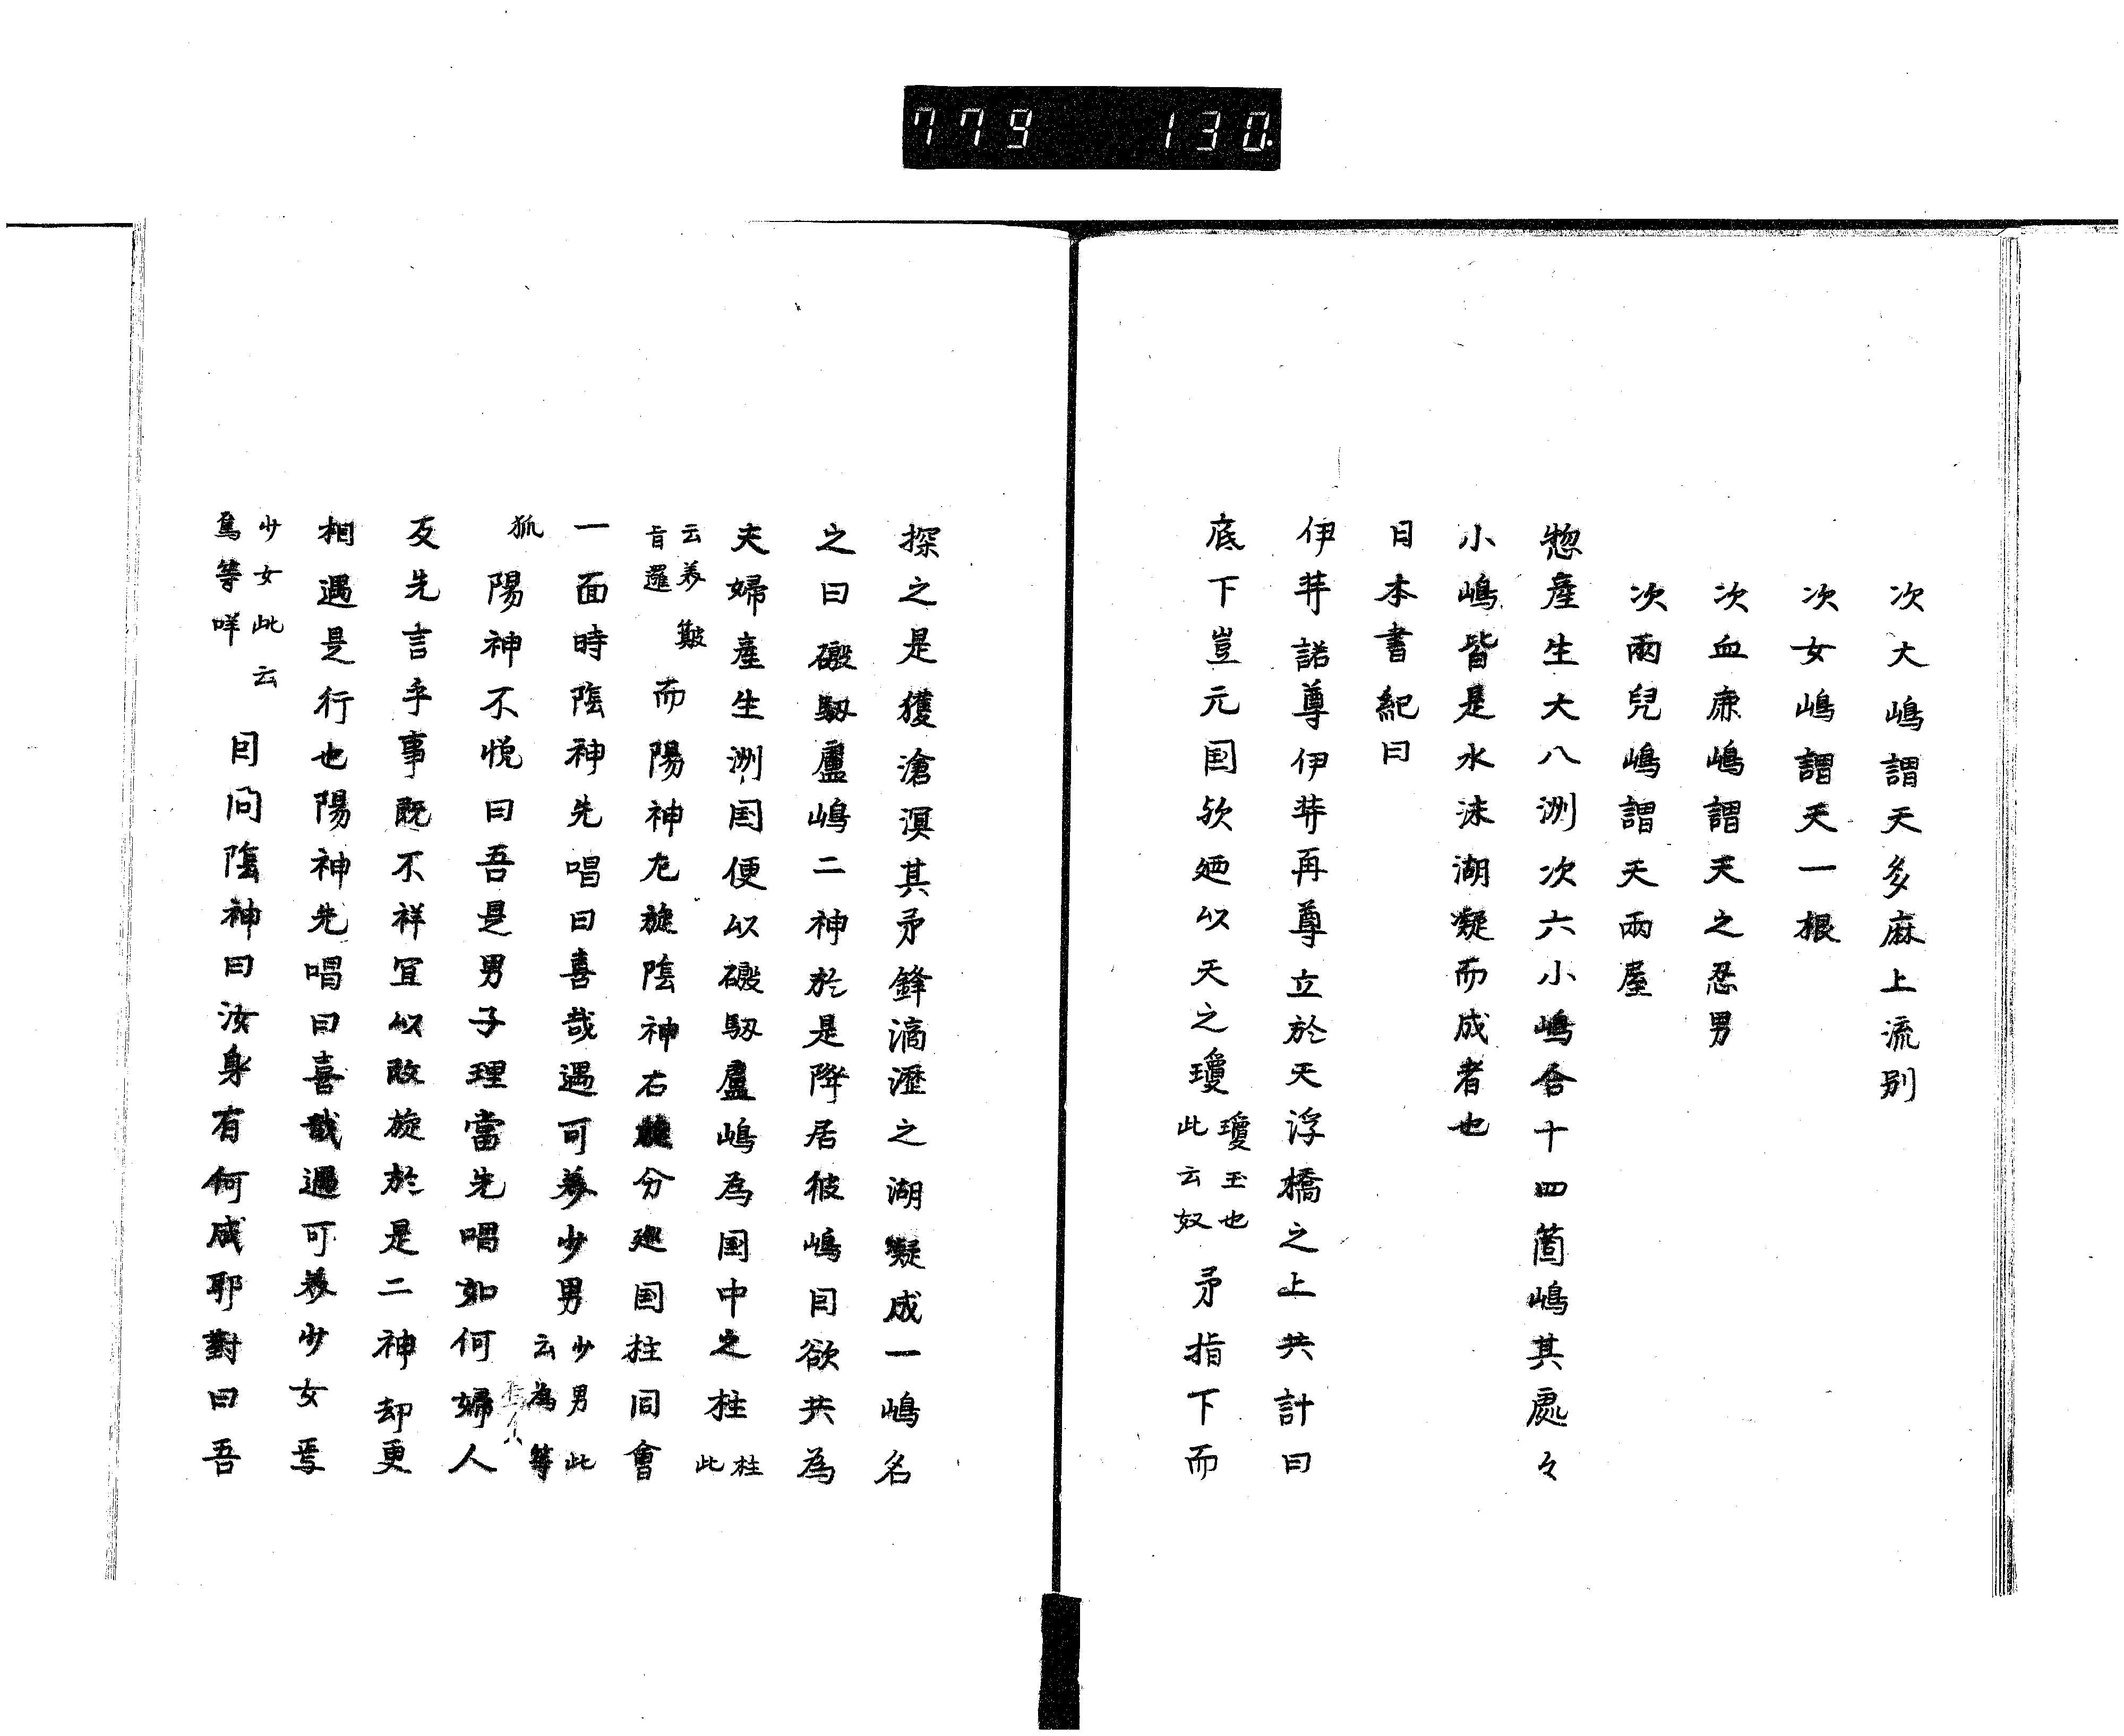 779 130
次大嶋謂天多麻上流別
次女嶋謂天一根
次血鹿嶋謂天之忍男
次兩兒嶋謂天兩屋
惣産生大八洲次六小嶋合十四箇嶋其處々
小嶋皆是水沫湖凝而成者也
日本書紀曰
伊弉諾尊伊弉再尊立於天浮橋之上共計曰
底下豈元国欤廼以天之瓊瓊玉也此云奴矛指下而
探之是獲滄溟其矛鋒滴瀝之湖凝成一嶋名
之曰磤馭盧嶋二神於是降居彼嶋因欲共為
夫婦産生洲国便以磤馭盧嶋為国中之柱柱此
云美簸旨邏而陽神左旋陰神右旋分廻国柱同會
一面時陰神先唱曰喜哉遇可美少男少男此云為等
狐陽神不悦曰吾是男子理當先唱如何婦人
反先言乎事既不祥宜以改旋於是二神却更
相遇是行也陽神先唱曰喜哉遇可美少女焉
少女此云烏等咩因問陰神曰汝身有何成耶對曰吾